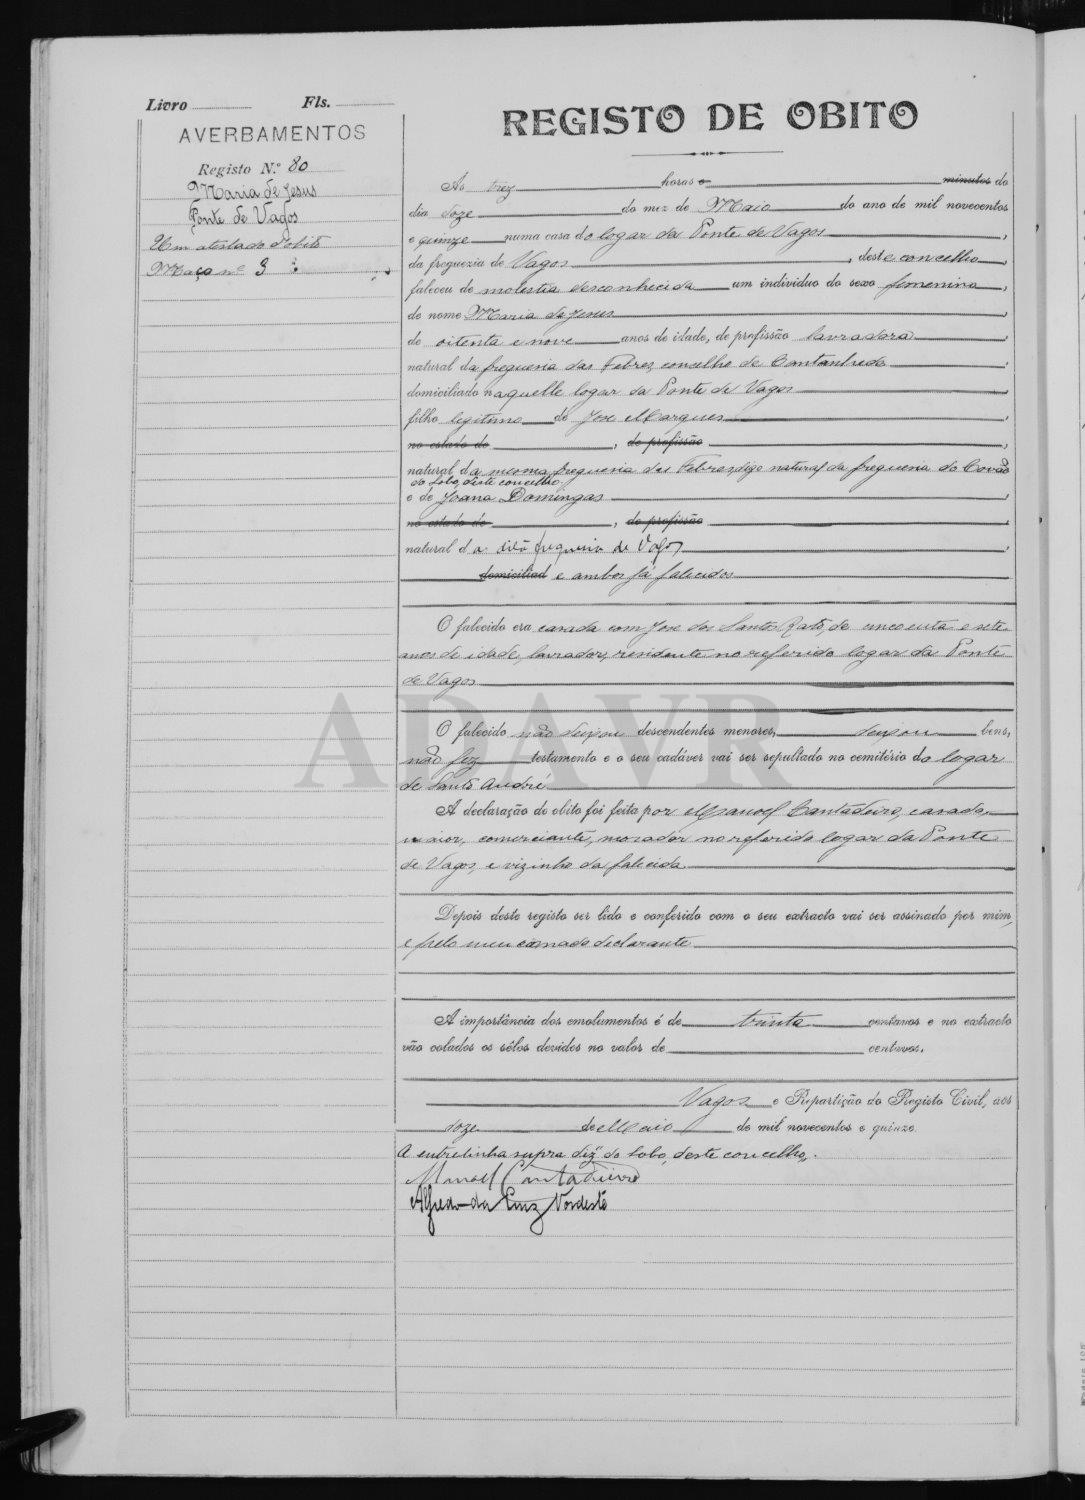 Livro Fls.
AVERBAMENTOS
Registo N.º 80
Maria de Jesus
Ponte de Vagos
Um atestado d'obito
Maço nº 3
REGISTO DE OBITO
Às trez horas e minutos do
dia doze do mez de Maio do ano de mil novecentos
e quinze numa casa do logar da Ponte de Vagos,
da freguezia de Vagos, deste concelho,
faleceu de molestia desconhecida um individuo do sexo femenino,
de nome Maria de Jesus,
de oitenta e nove anos de idade, de profissão lavradora,
natural da freguesia das Febres, concelho de Cantanhede,
domiciliado naquelle logar da Ponte de Vagos,
filho legitimo de Jose Marques,
no estado de, de profissão,
natural da mesma freguesia das Febres, digo natural da freguesia do Covão
do Lobo, deste concelho,
e de Joana Domingas,
no estado de, de profissão,
natural da dita freguesia de Vagos,
domiciliad e ambos já falecidos
O falecido era casada com Jose dos Santos Rato, de cincoenta e sete
anos de idade, lavrador, residente no referido logar da Ponte
de Vagos
ADAVR
O falecido não deixou descendentes menores, deixou bens,
não fez testamento e o seu cadáver vai ser sepultado no cemitério do logar
de Santo André
A declaração do obito foi feita por Manoel Cantadeiro, casado,
maior, comerciante, morador no referido logar da Ponte
de Vagos, e vizinho da falecida
Depois deste registo ser lido e conferido com o seu extracto vai ser assinado por mim,
e pelo mencionado declarante
A importância dos emolumentos é de trinta centavos e no extracto
vão colados os sêlos devidos no valor de centavos.
Vagos e Repartição do Registo Civil, aos
doze de Maio de mil novecentos e quinze
A entrelinha supra diz "do Lobo, deste concelho".
Manoel Cantadeiro
Alfredo da Cruz Nordeste